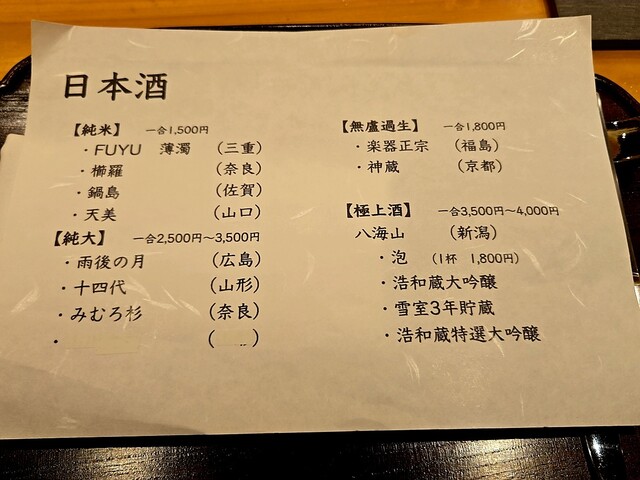 日本酒
【純米】 一合1,500円
・FUYU 薄濁 (三重)
・櫛羅 (奈良)
・鍋島 (佐賀)
・天美 (山口)
【純大】 一合2,500円〜3,500円
・雨後の月 (広島)
・十四代 (山形)
・みむろ杉 (奈良)
・ ( )
【無盧過生】 一合1,800円
・楽器正宗 (福島)
・神蔵 (京都)
【極上酒】 一合3,500円〜4,000円
八海山 (新潟)
・泡 (1杯 1,800円)
・浩和蔵大吟醸
・雪室3年貯蔵
・浩和蔵特選大吟醸